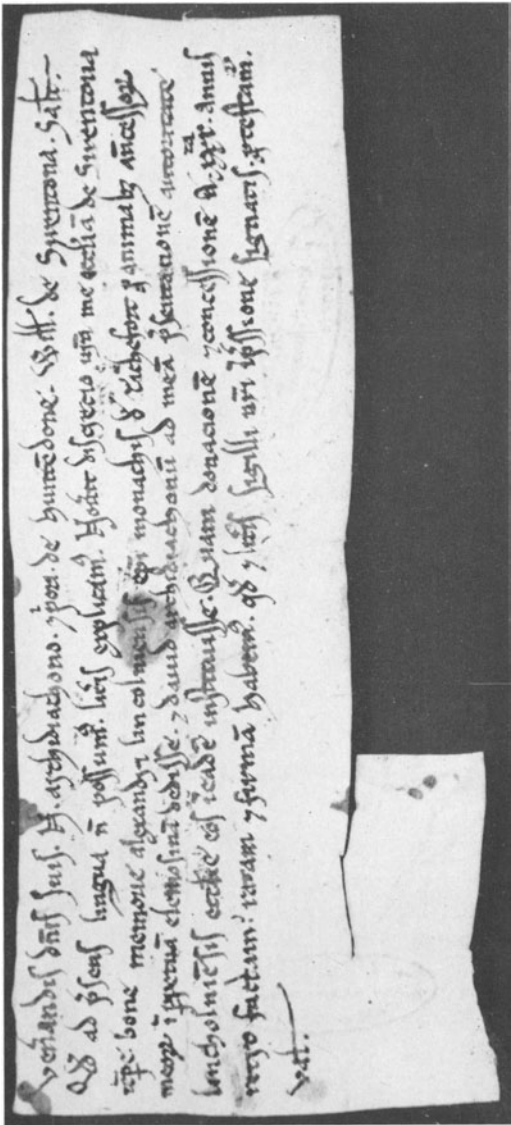 Ven̄andis dn̄is suis. H. archidiachono. ⁊ de huntēdone. Will. de Swentona. Salt̄.
Qd̄ ad p̄sens lingua n̄ possum᷒. litt̄is explicam᷒. Nov̄it discretio ur̄a me eccl̄iā de Swentona
tēpe bone memorie alexandri lincolniensis ep̄i monachis d̄ ꝓ animab; an̄cessoꝝ
meoꝝ ī ppetuā elemosinā dedisse. ⁊ david archidiachonū ad meā p̄sentationē auctoritate
lincholniēsis eccl̄ie eos ī eadē instituisse. Quam donacionē ⁊ concessionē a. annis
retro factam: ratam ⁊ firmā habem᷒. qd̄ ⁊ litt̄is sigilli nr̄i īp̄ssione signatis. ꝓtestam᷒.
Val.